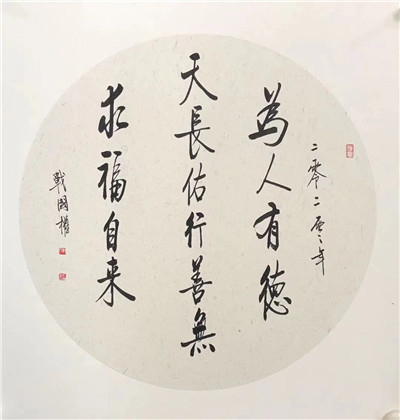 二零二 年
為人有德
天長佑行善無
求福自来
戰國權